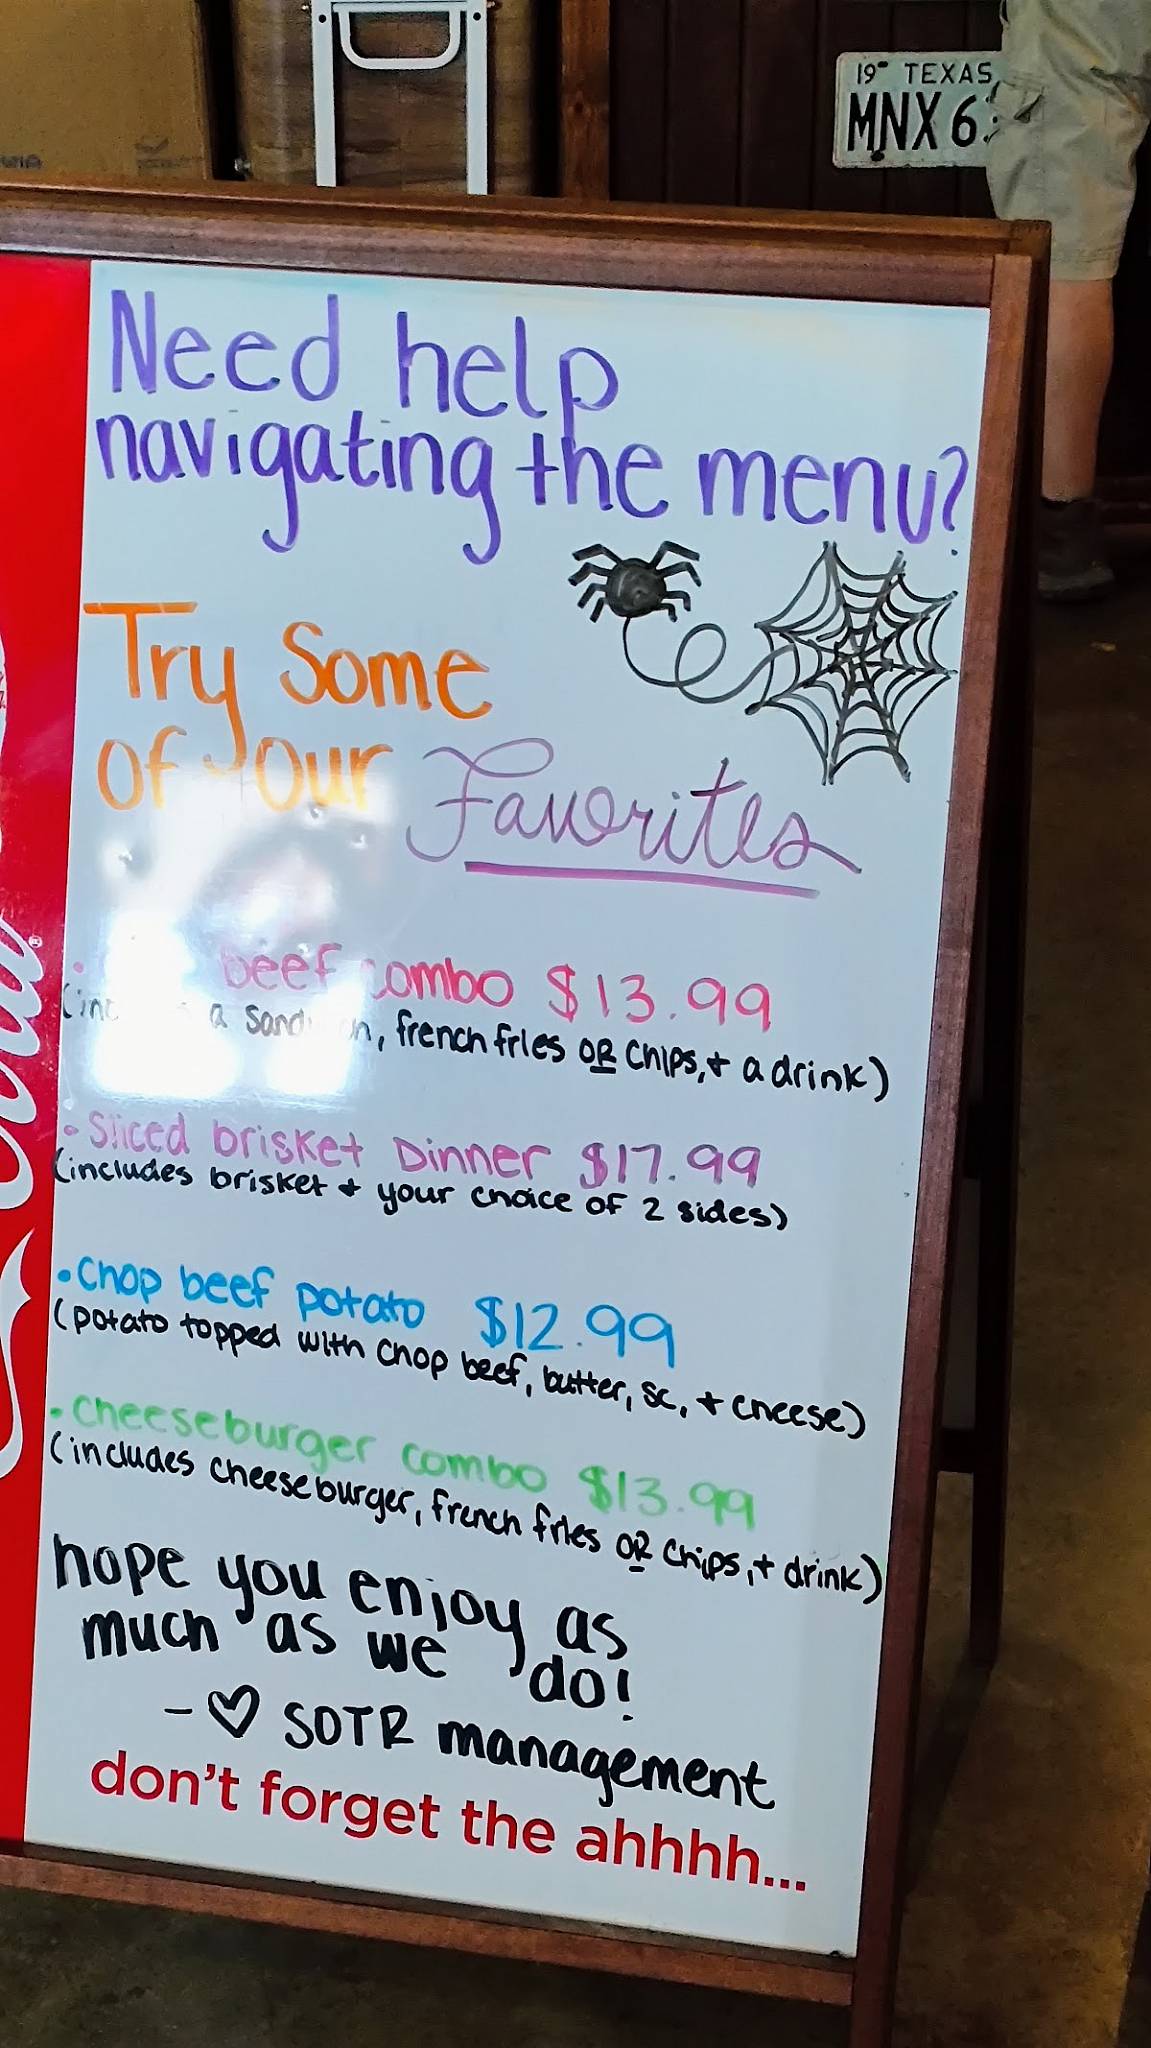 19 TEXAS
MNX 6
Need help
navigating the menu?
Try Some
of your Favorites
beef combo $13.99
a sandwich, french fries OR chips, + a drink)
• Sliced brisket Dinner $17.99
(includes brisket + your choice of 2 sides)
• Chop beef potato $12.99
(potato topped with chop beef, butter, sc, + cheese)
• Cheeseburger combo $13.99
(includes cheeseburger, french fries OR chips, + drink)
hope you enjoy as
much as we do!
- ♡ SOTR management
don't forget the ahhhh...